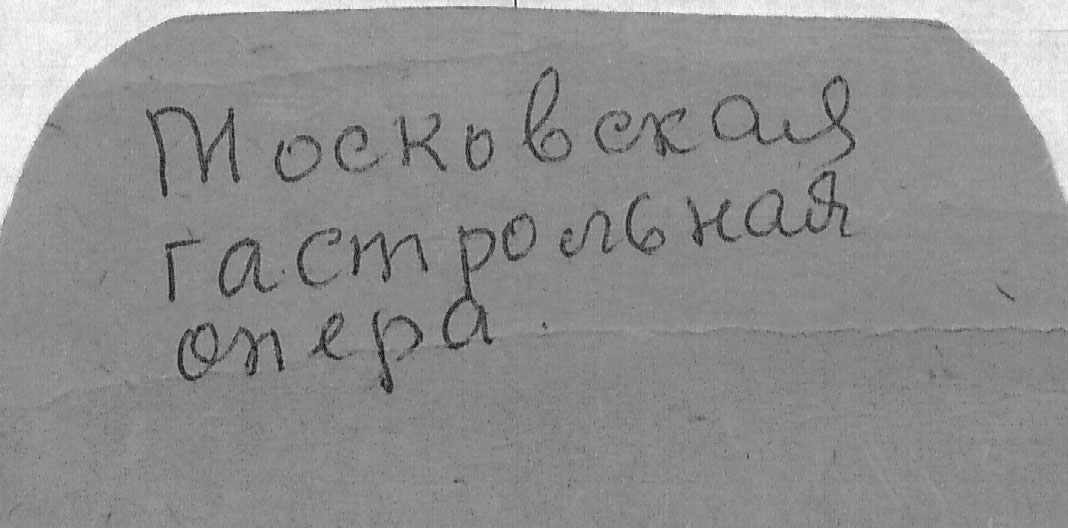 Московская
гастрольная
опера.